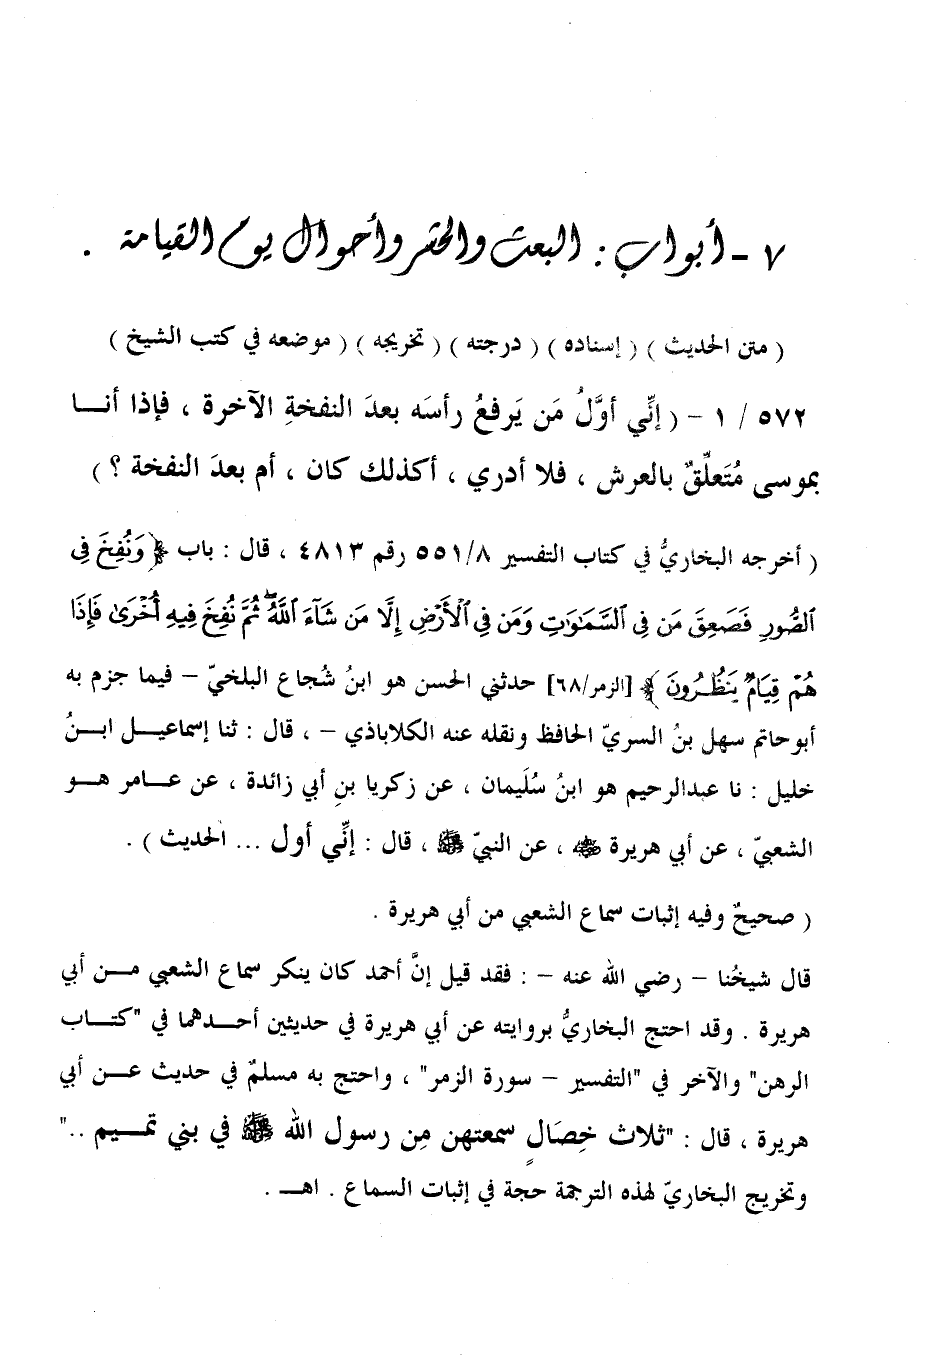 ٧ - أبواب : البعث والحشر وأحوال يوم القيامة .
( متن الحديث ) ( إسناده ) ( درجته ) ( تخريجه ) ( موضعه في كتب الشيخ )
٥٧٢ / ١ - ( إنِّي أوَّلُ مَن يَرفعُ رأسَه بعدَ النفخةِ الآخرة ، فإذا أنـــا
بموسى مُتَعلِّقٌ بالعرش ، فلا أدري ، أكذلك كان ، أم بعدَ النفخة ؟ )
( أخرجه البخاريُّ في كتاب التفسير ٥٥١/٨ رقم ٤٨١٣ ، قال : باب ﴿ وَنُفِخَ فِى
ٱلصُّورِ فَصَعِقَ مَن فِى ٱلسَّمَٰوَٰتِ وَمَن فِى ٱلْأَرْضِ إِلَّا مَن شَآءَ ٱللَّهُ ۖ ثُمَّ نُفِخَ فِيهِ أُخْرَىٰ فَإِذَا
هُمْ قِيَامٌ يَنظُرُونَ ﴾ [الزمر/٦٨] حدثني الحسن هو ابنُ شُجاع البلخيّ - فيما جزم به
أبوحاتم سهل بنُ السريّ الحافظ ونقله عنه الكلاباذي - ، قال : ثنا إسماعيــل ابــنُ
خليل : نا عبدالرحيم هو ابنُ سُلَيمان ، عن زكريا بنِ أبي زائدة ، عن عـــامر هـــو
الشعبيّ ، عن أبي هريرة ﵁ ، عن النبيّ ﷺ ، قال : إنِّي أول ... الحديث ) .
( صحيحٌ وفيه إثبات سماع الشعبي من أبي هريرة .
قال شيخُنا - رضي الله عنه - : فقد قيل إنَّ أحمد كان ينكر سماع الشعبي مـــن أبي
هريرة . وقد احتج البخاريُّ بروايته عن أبي هريرة في حديثين أحـــدهما في "كتـــاب
الرهن" والآخر في "التفسير - سورة الزمر" ، واحتج به مسلمٌ في حديث عـــن أبي
هريرة ، قال : "ثلاث خِصَالٍ سمعتهن مِن رسول الله ﷺ في بني تمـــيم .."
وتخريج البخاريّ لهذه الترجمة حجة في إثبات السماع . اهــ .